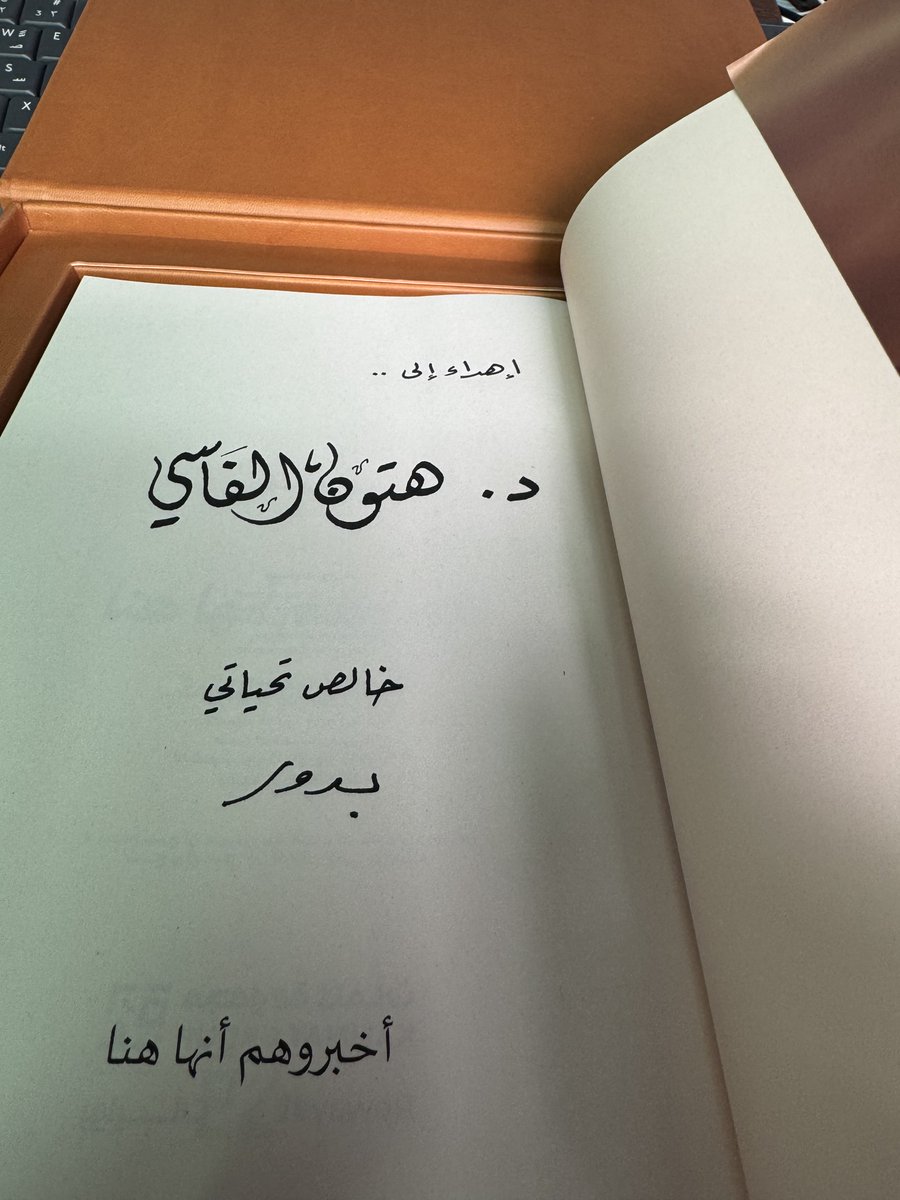 إهداء إلى ..
د. هتون الفَاسي
خالص تحياتي
بدور
أخبروهم أنها هنا
W
E
S
X